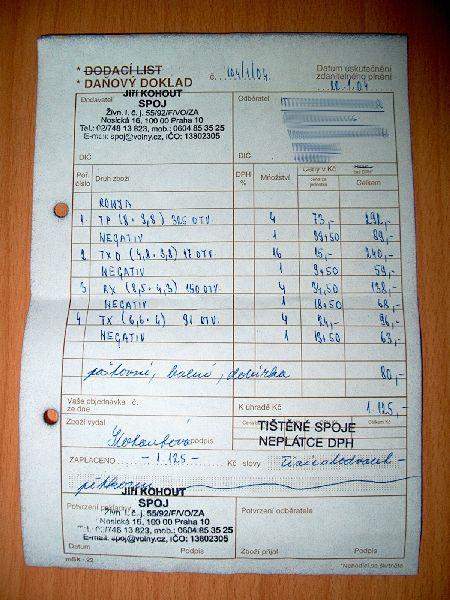 * DODACÍ LIST
* DAŇOVÝ DOKLAD
č. 104/1/04
Datum uskutečnění
zdanitelného plnění
20.1.04
Dodavatel
JIří KOHOUT
SPOJ
Živn. l. č. j. 55/92/F/VO/ZA
Nosická 16, 100 00 Praha 10
Tel.: 02/748 13 823, mob.: 0604 85 35 25
E-mail: spoj@volny.cz, IČO: 13802305
DIČ
Odběratel
DIČ
Poř. číslo Druh zboží DPH % Množství Ceny v Kč cena za jednotku bez DPH* Celkem
RONJA
1 TP (8 × 3,8) 325 OTV. 4 73,- 292,-
NEGATIV 1 89,-
2 TXD (4,8 × 3,8) 17 OTV. 16 15,- 240,-
NEGATIV 1 59,-
3 RX (8,5 × 4,3) 150 OTV. 4 34,50 138,-
NEGATIV 1 68,-
4 TX (6,6 × 4) 91 OTV. 4 24,- 96,-
NEGATIV 1 63,-
poštovní, balné, dobírka 80,-
Vaše objednávka č.
ze dne
K úhradě Kč 1.125,-
Zboží vydal
Kohoutková podpis
TIŠTĚNÉ SPOJE
NEPLÁTCE DPH
ZAPLACENO -1.125- Kč slovy
JIří KOHOUT
SPOJ
Živn. l. č. j. 55/92/F/VO/ZA
Nosická 16, 100 00 Praha 10
Tel.: 02/748 13 823, mob.: 0604 85 35 25
E-mail: spoj@volny.cz, IČO: 13802305
Potvrzení
Datum Podpis
Potvrzení odběratele
Zboží přijal Podpis
mSK - 22
*Nehodící se škrtněte